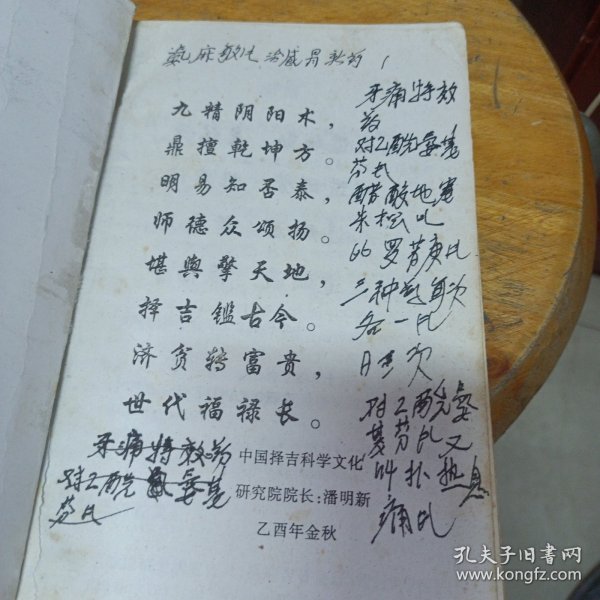 氨麻敏片治感冒头药
九精阴阳术，
鼎擅乾坤方。
明易知否泰，
师德众颂扬。
堪舆擎天地，
择吉鉴古今。
济贫转富贵，
世代福禄长。
中国择吉科学文化
研究院院长：潘明新
乙酉年金秋
牙痛特效
药
对乙酰氨基
芬片
醋酸地塞
米松片
罗芬
三种
各一片
日 次
对乙酰氨
基芬片又
叫扑热息
痛片
牙痛特效药
对乙酰氨基
芬片
孔夫子旧书网
www.kongfz.com